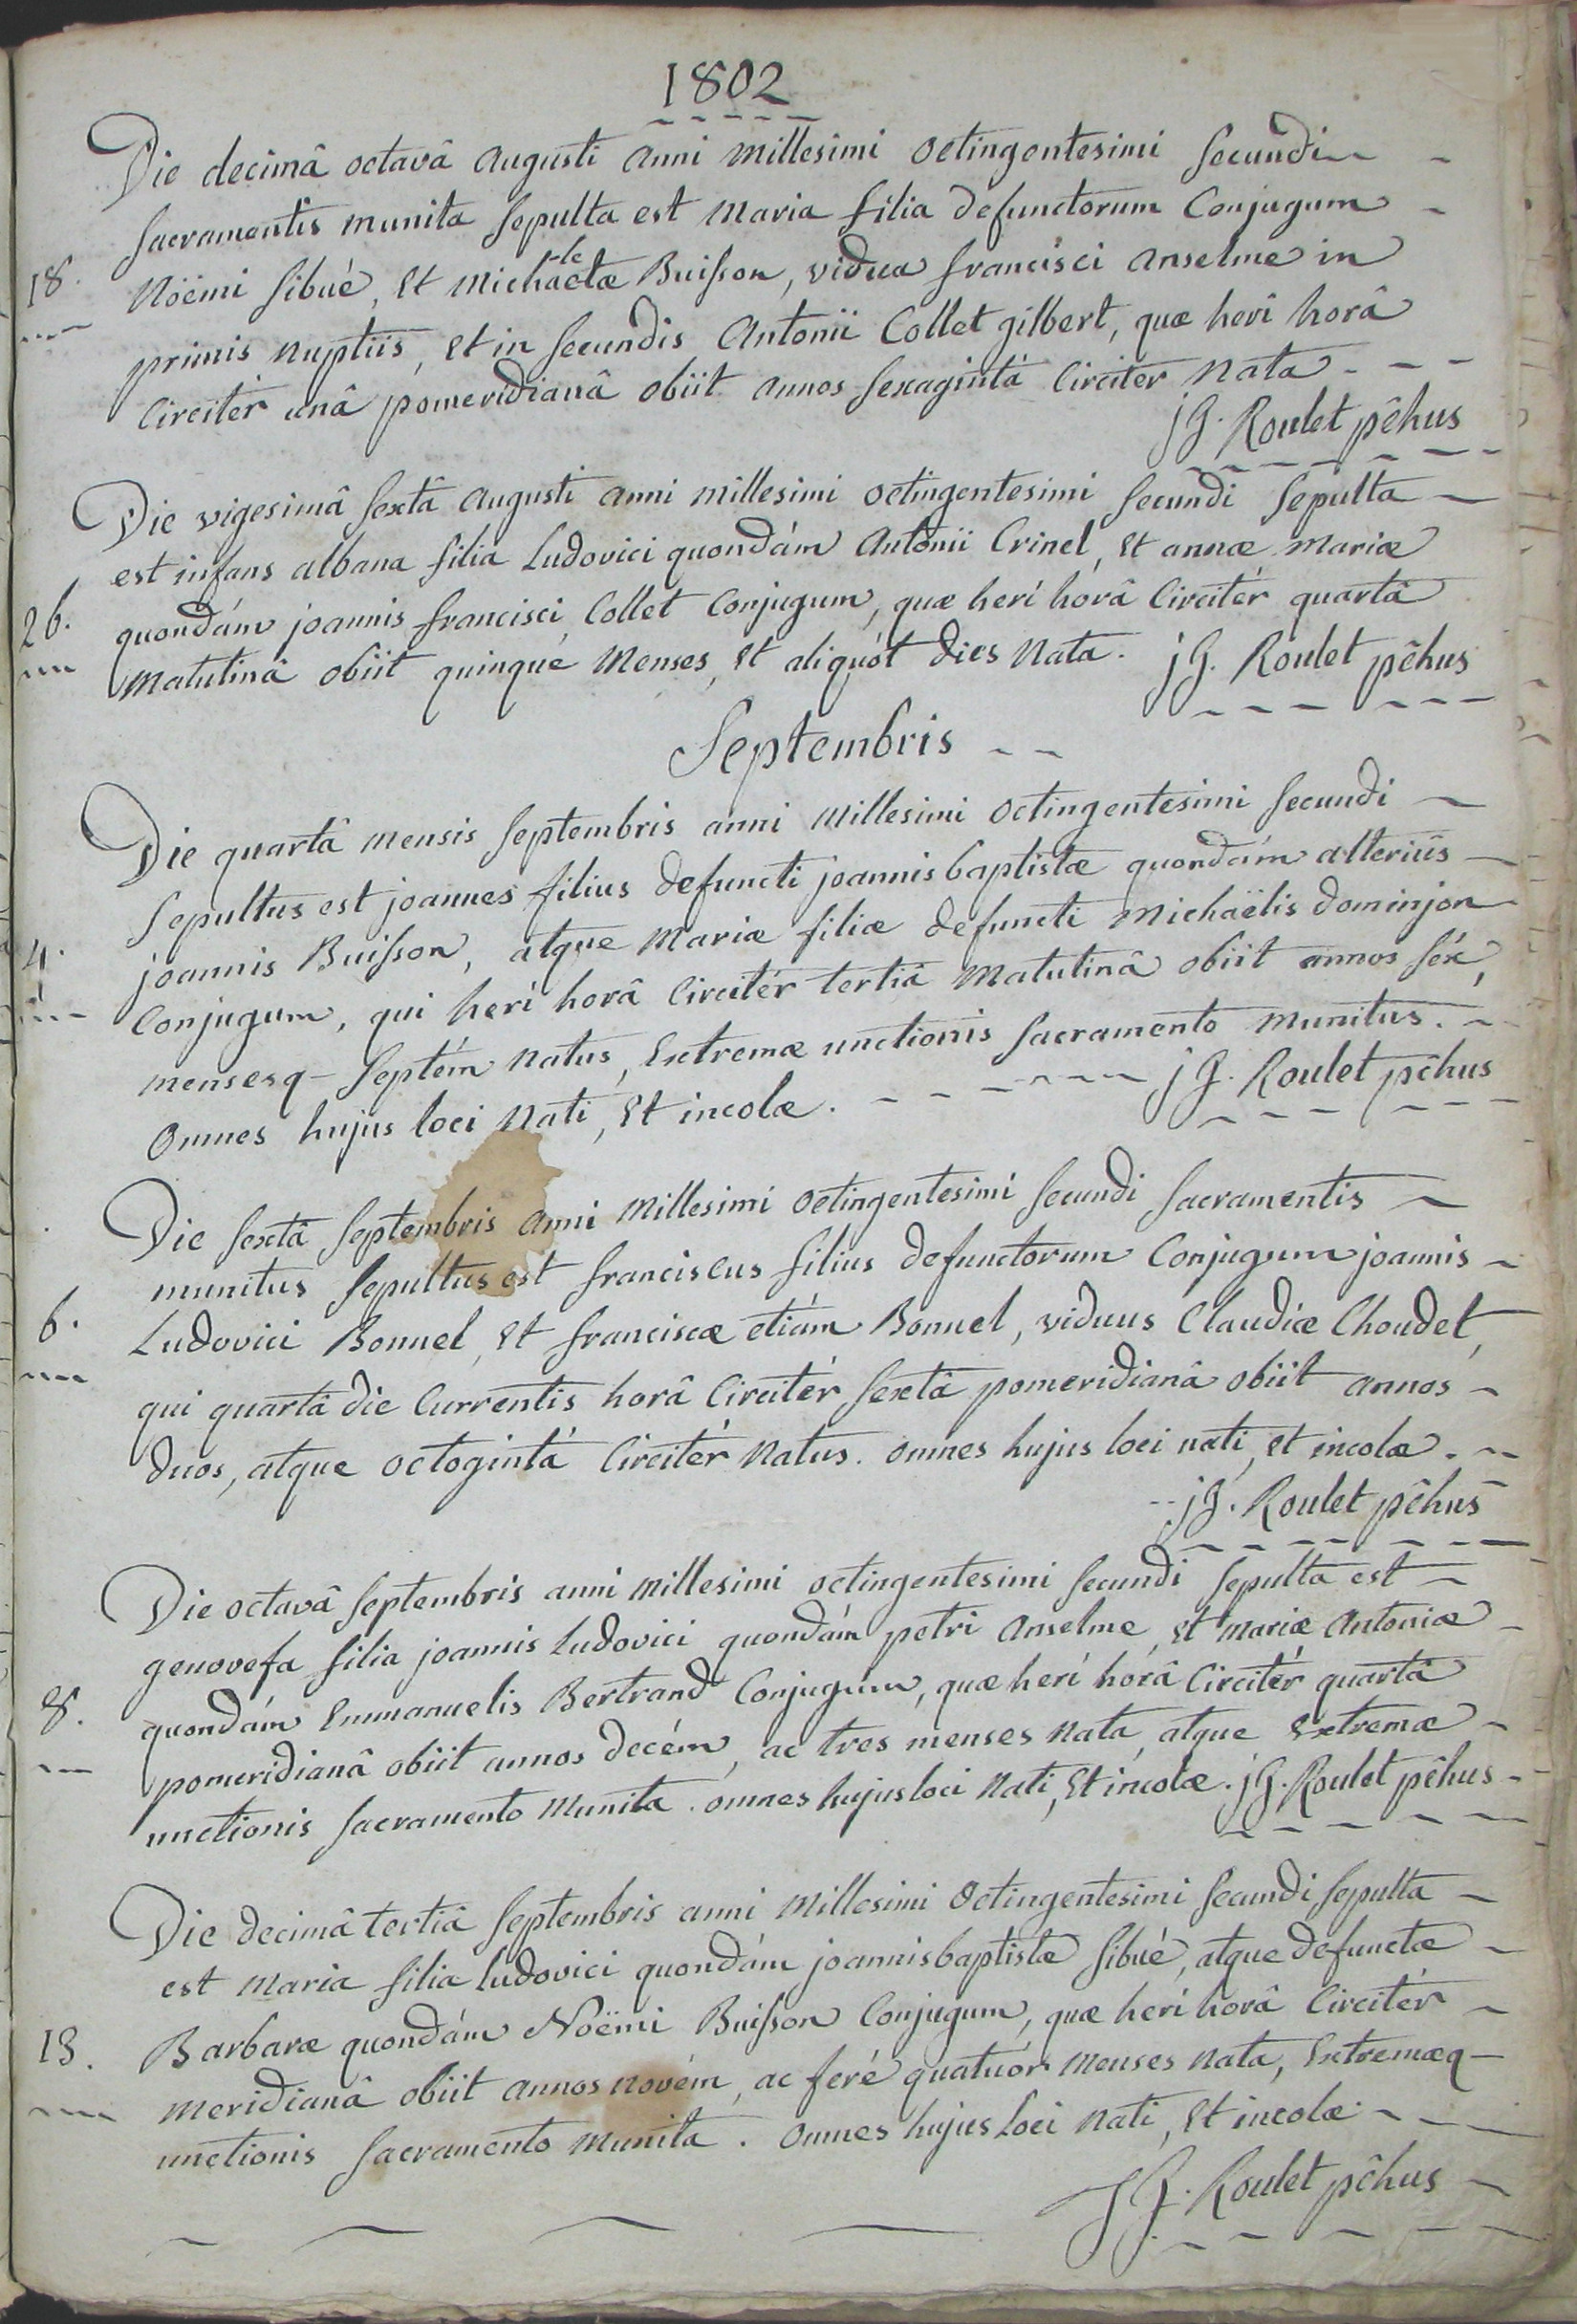 1802
Die decimâ octavâ augusti anni millesimi octingentesimi secundi
sacramentis munita sepulta est maria filia defunctorum Conjugum
18. Nöemi sibué, Et michaelæ Buisson, vidua francisci anselme in
primis nuptiis, Et in secundis Antonii Collet gilbert, quæ herî horâ
Circitér unâ pomeridianâ obiit annos sexagintà Circiter nata
jG. Roulet pĉhus
Die vigesimâ sextâ augusti anni millesimi octingentesimi secundi sepulta
est infans albana filia Ludovici quondám Antonii Crinel, Et annæ mariæ
26. quondám joannis francisci Collet Conjugum, quæ herí horâ Circitér quartâ
matutinâ obiit quinque menses, Et aliquót dies nata. jG. Roulet pĉhus
Septembris
Die quartâ mensis septembris anni millesimi octingentesimi secundi
sepultus est joannes filius defuncti joannis baptistæ quondám alteriûs
4. joannis Buisson, atque mariæ filiæ defuncti michaëlis dominjon
Conjugum, qui herí horâ Circitér tertiâ matutinâ obiit annos séx,
mensesq- septém natus, Extremæ unctionis sacramento munitus.
Omnes hujus loci nati, Et incolæ. jG. Roulet pĉhus
Die sextâ septembris anni millesimi octingentesimi secundi sacramentis
munitus sepultus est franciscus filius defunctorum Conjugum joannis
6. Ludovici Bonnel, Et franciscæ etiám Bonnel, viduus Claudiæ Choudet,
qui quartâ die Currentis horâ Circitér sextâ pomeridianâ obiit annos
duos, atque octogintá Circitér natus. omnes hujus loci nati, Et incolæ.
jG. Roulet pĉhus
Die octavâ septembris anni millesimi octingentesimi secundi sepulta est
genovefa filia joannis Ludovici quondám petri anselme, Et mariæ Antoniæ
8. quondám Emmanuelis Bertrand Conjugum, quæ herí horâ Circitér quartâ
pomeridianâ obiit annos decém, ac tres menses nata, atque Extremæ
unctionis sacramento munita. omnes hujus loci nati, Et incolæ. jG. Roulet pĉhus
Die decimâ tertiâ septembris anni millesimi octingentesimi secundi sepulta
est maria filia ludovici quondám joannis baptistæ sibué, atque defunctæ
13. Barbaræ quondám Noëmi Buisson Conjugum, quæ herí horâ Circitér
meridianâ obiit annos novém, ac feré quatuór menses nata, Extremæq-
unctionis sacramento munita. Omnes hujus loci nati, Et incolæ.
JG. Roulet pĉhus